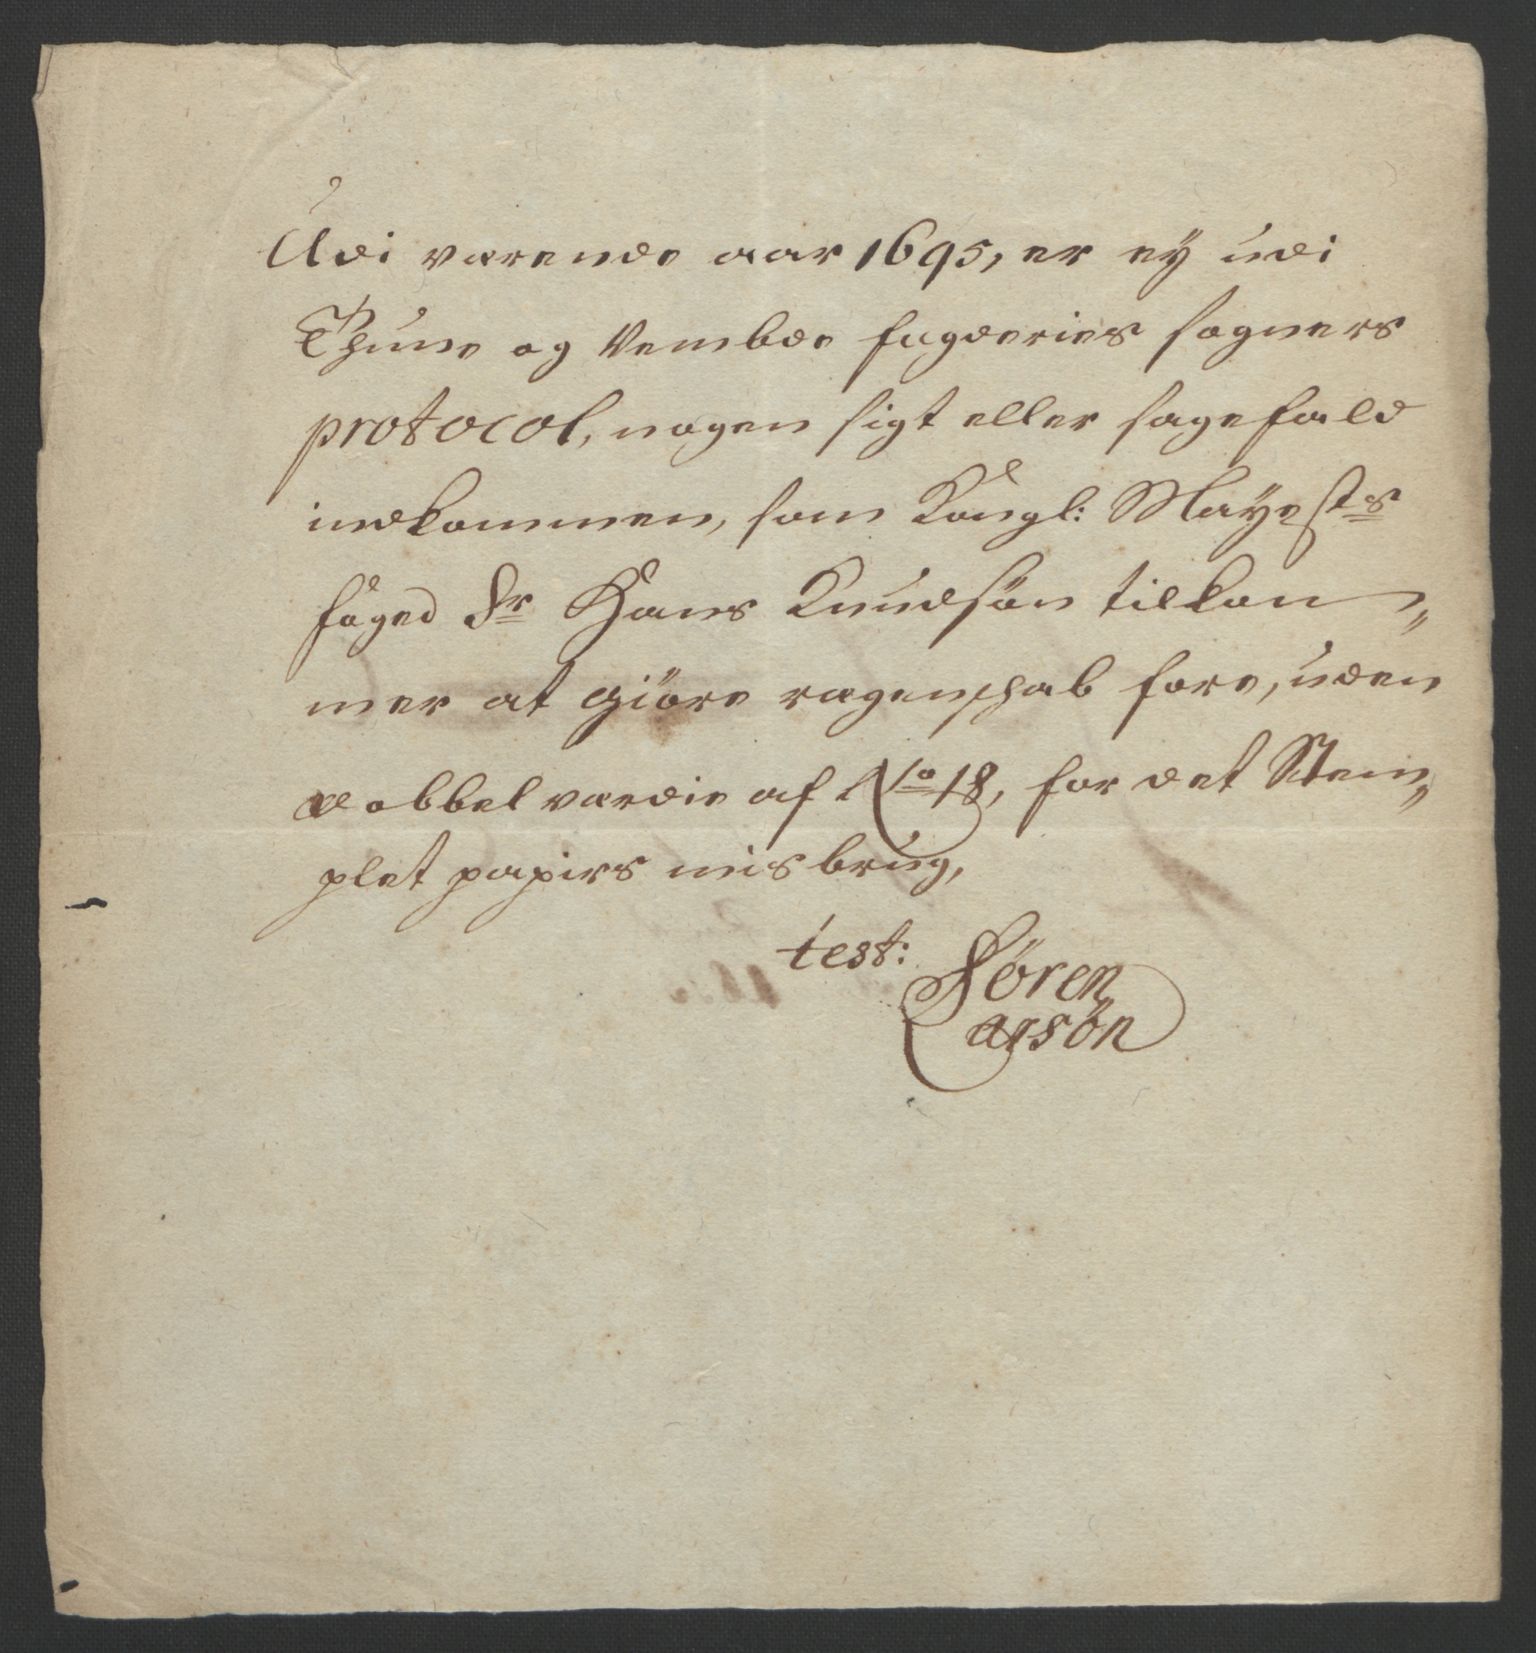 Udi værende aar 1695, er ey udi
Thune og Vembde fogderies sogners
protocol, nogen sigt eller sagefald
indkommen, som Kongl: Mayests
foged Sr Hans Knudsön tilkom„
mer at giöre regenschab fore, uden
dobbel værdie af No 18, for det Stem„
plet papirs misbrug,
test:
Sören
Larsön